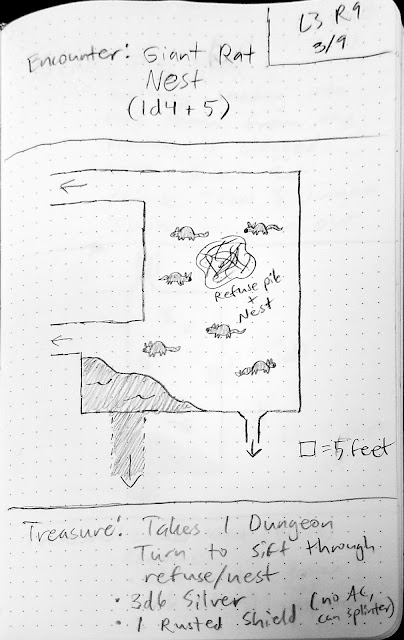 L3 R9
3/9
Encounter: Giant Rat
Nest
(1d4+5)
Refuse pit
+
Nest
□ = 5 feet
Treasure: Takes 1 Dungeon
Turn to sift through
refuse/nest
• 3d6 Silver
• 1 Rusted Shield (no AC,
can splinter)